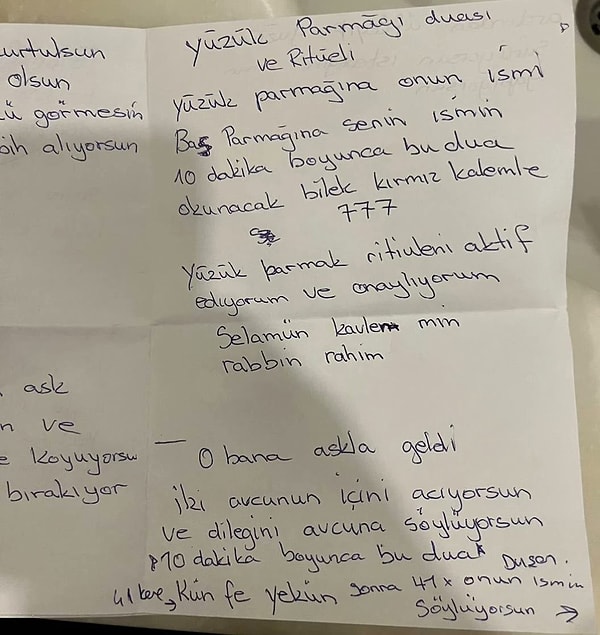 urtulsun
olsun
ü görmesin
bih alıyorsun
ask
n ve
e koyuyorsu
bırakıyor
Yüzük Parmağı duası
ve Ritüeli
Yüzük parmağına onun ismi
Baş Parmağına senin ismin
10 dakika boyunca bu dua
okunacak bilek kırmız kalemle
777
Yüzük parmak ritiuleni aktif
ediyorum ve onaylıyorum
Selamün kavlen min
rabbin rahim
O bana askla geldi
iki avcunun içini acıyorsun
ve dileğini avcuna söylüyorsun
10 dakika boyunca bu duak Dusen.
41 kere → Kün fe yekün sonra 41x onun ismin
Söylüyorsun →